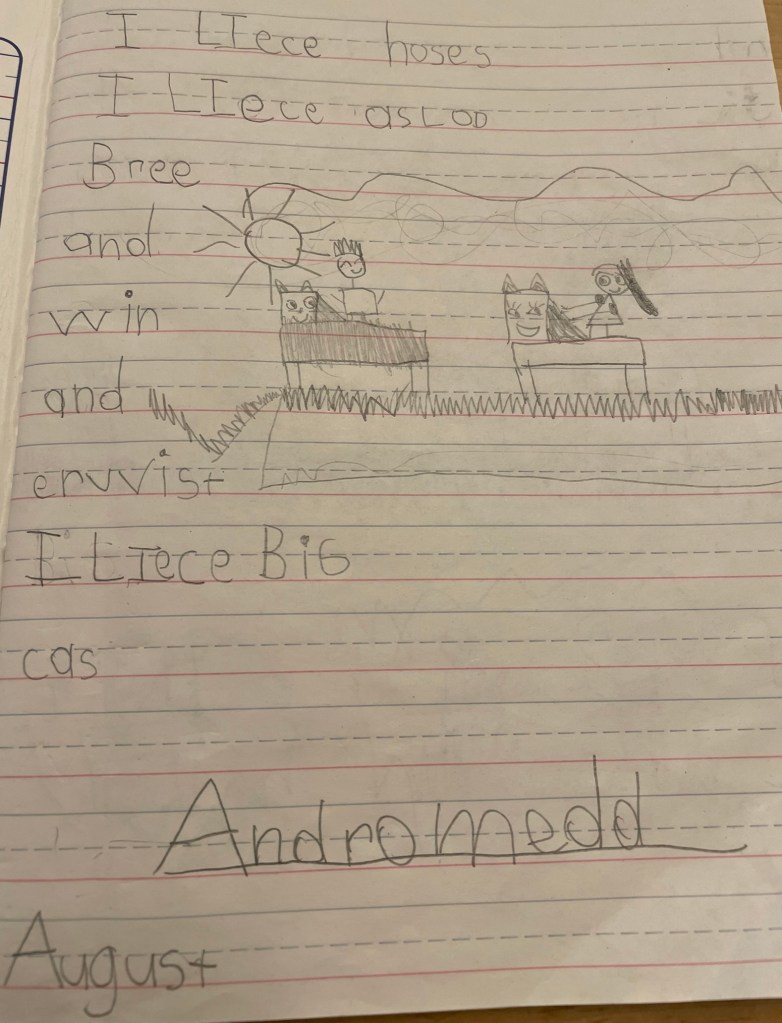 I LIece hoses
I LIece asLOD
Bree
and
win
and
ervvist
I LIece Big
cas
Andromedd
August